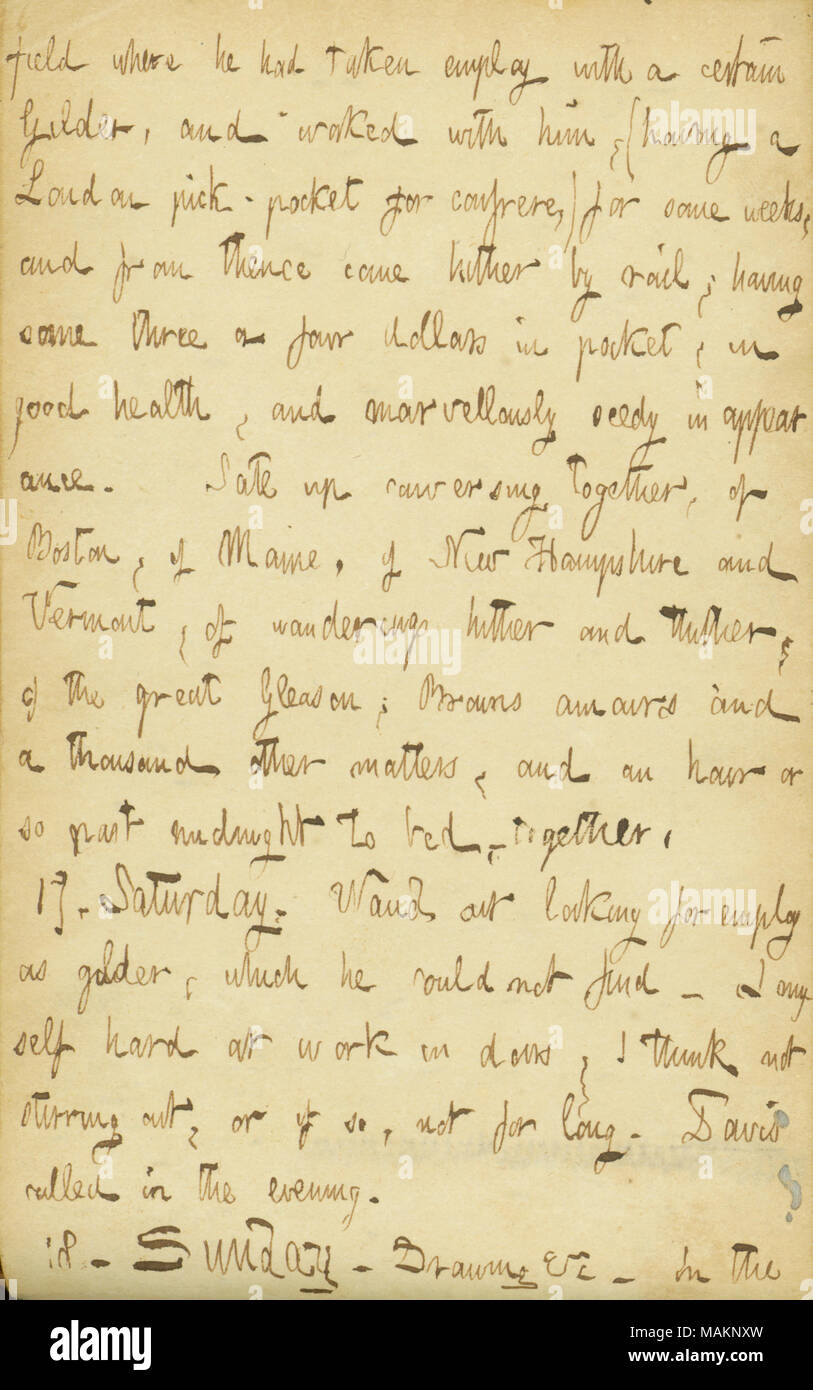 field where he had taken employ with a certain
Gilder, and worked with him, (having a
London pick-pocket for confrere,) for some weeks,
and from thence came hither by rail, having
some three or four dollars in pocket, in
good health, and marvellously seedy in appear
ance. Sate up conversing together, of
Boston, of Maine, of New Hampshire and
Vermont, of wanderings hither and thither,
of the great Gleason, Browns amours and
a thousand other matters, and an hour or
so past midnight to bed, together.
17. Saturday. Waud out looking for employ
as gilder, which he could not find _ I my
self hard at work in doors, I think not
stirring out, or if so, not for long. Davis
called in the evening.
18 _ Sunday _ Drawing &c _ In the
alamy
Image ID: MAKNXW
www.alamy.com